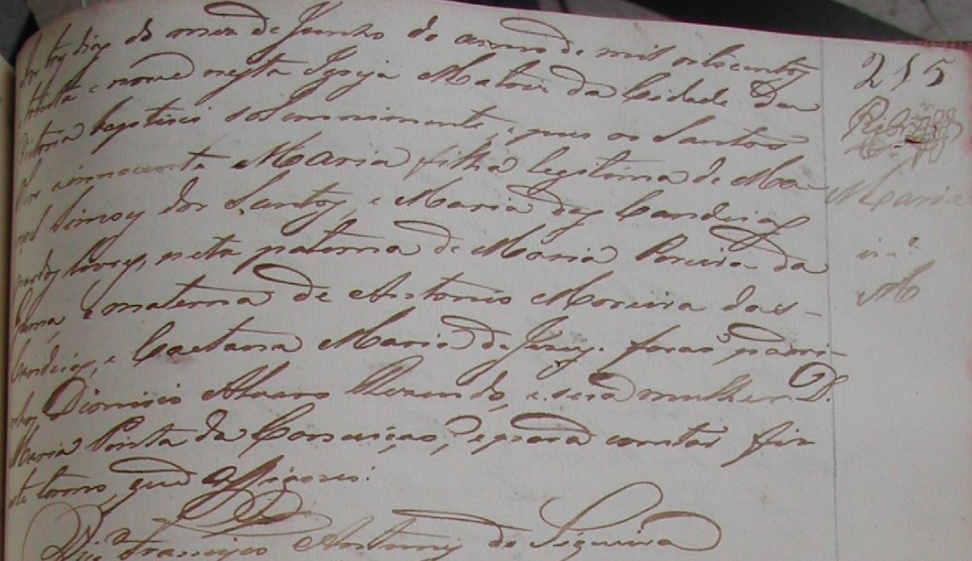 dias do mez de Junho do anno de mil oitocentos
trinta e nove nesta Igreja Matriz da Cidade da
Victoria baptisei solemnemente, e pus os Santos
Olios innocente Maria filha legitima de Ma-
noel Simoes dos Santos, e Maria das Candeias
neta paterna de Maria Pereira da
materna de Antonio Moreira das
Candeias, e Caetana Maria de Jesus. foraõ padri-
nhos Dionizio Alvaro Rezendo, e sua mulher D.
Maria Pinta da Conceiçaõ, e para constar fiz
este termo, que assignei.
Francisco Antunes de Siqueira
215
Maria
in.e